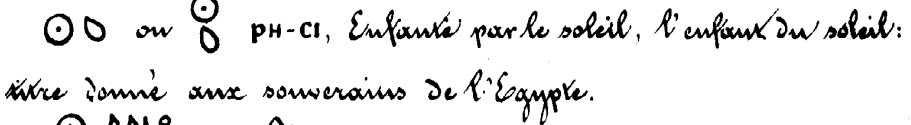 ou ⲣⲏ-ⲥⲓ, Enfanté par le soleil, l'enfant du soleil:
titre donné aux souverains de l'Egypte.